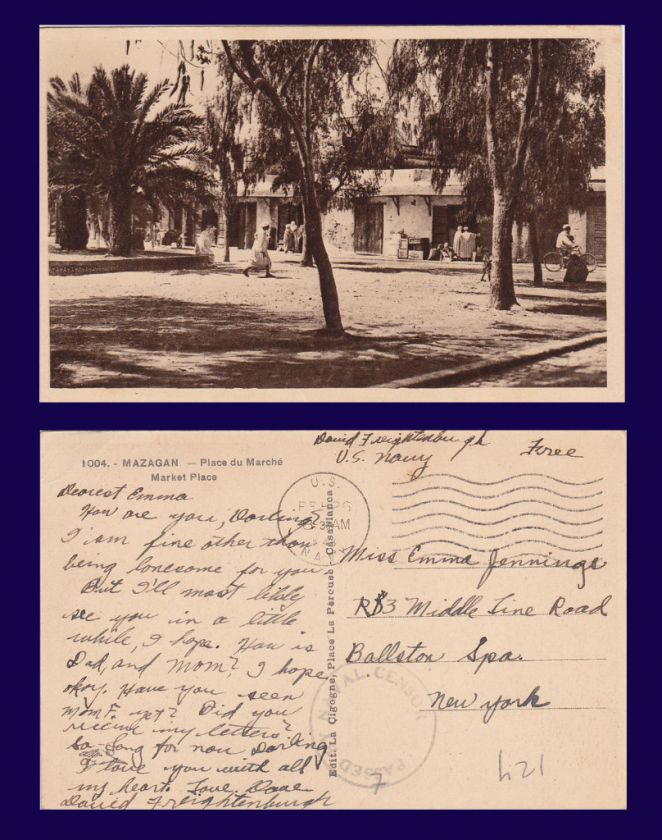 1004. - MAZAGAN — Place du Marché
Market Place
David Freightenburgh
U.S. Navy
Free
U.S.
FEB 26
AM
NAVY
Dearest Emma
How are you, Darling?
I am fine other than
being lonesome for you.
But I'll most likely
see you in a little
while, I hope. How is
Dad, and Mom? I hope
okay. Have you seen
Mom F. yet? Did you
receive my letters?
So-long for now Darling
I love you with all
my heart. Love, Dave
David Freightenburgh
Edit. La Cigogne, Place La Perouse - Casablanca
Miss Emma Jennings
RD3 Middle Line Road
Ballston Spa.
New York
PASSED BY NAVAL CENSOR
7
421